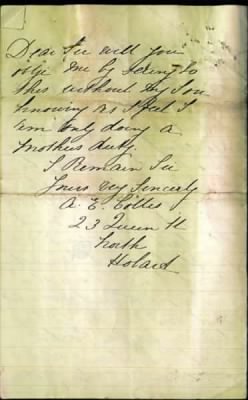 Dear Sir will you
oblie me by seeing to
this without my Son
knowing as I feel I
am only doing a
mothers duty.
I Remain Sir
Yours very Sincerly
A. E.
23 Queen St
North
Hobart